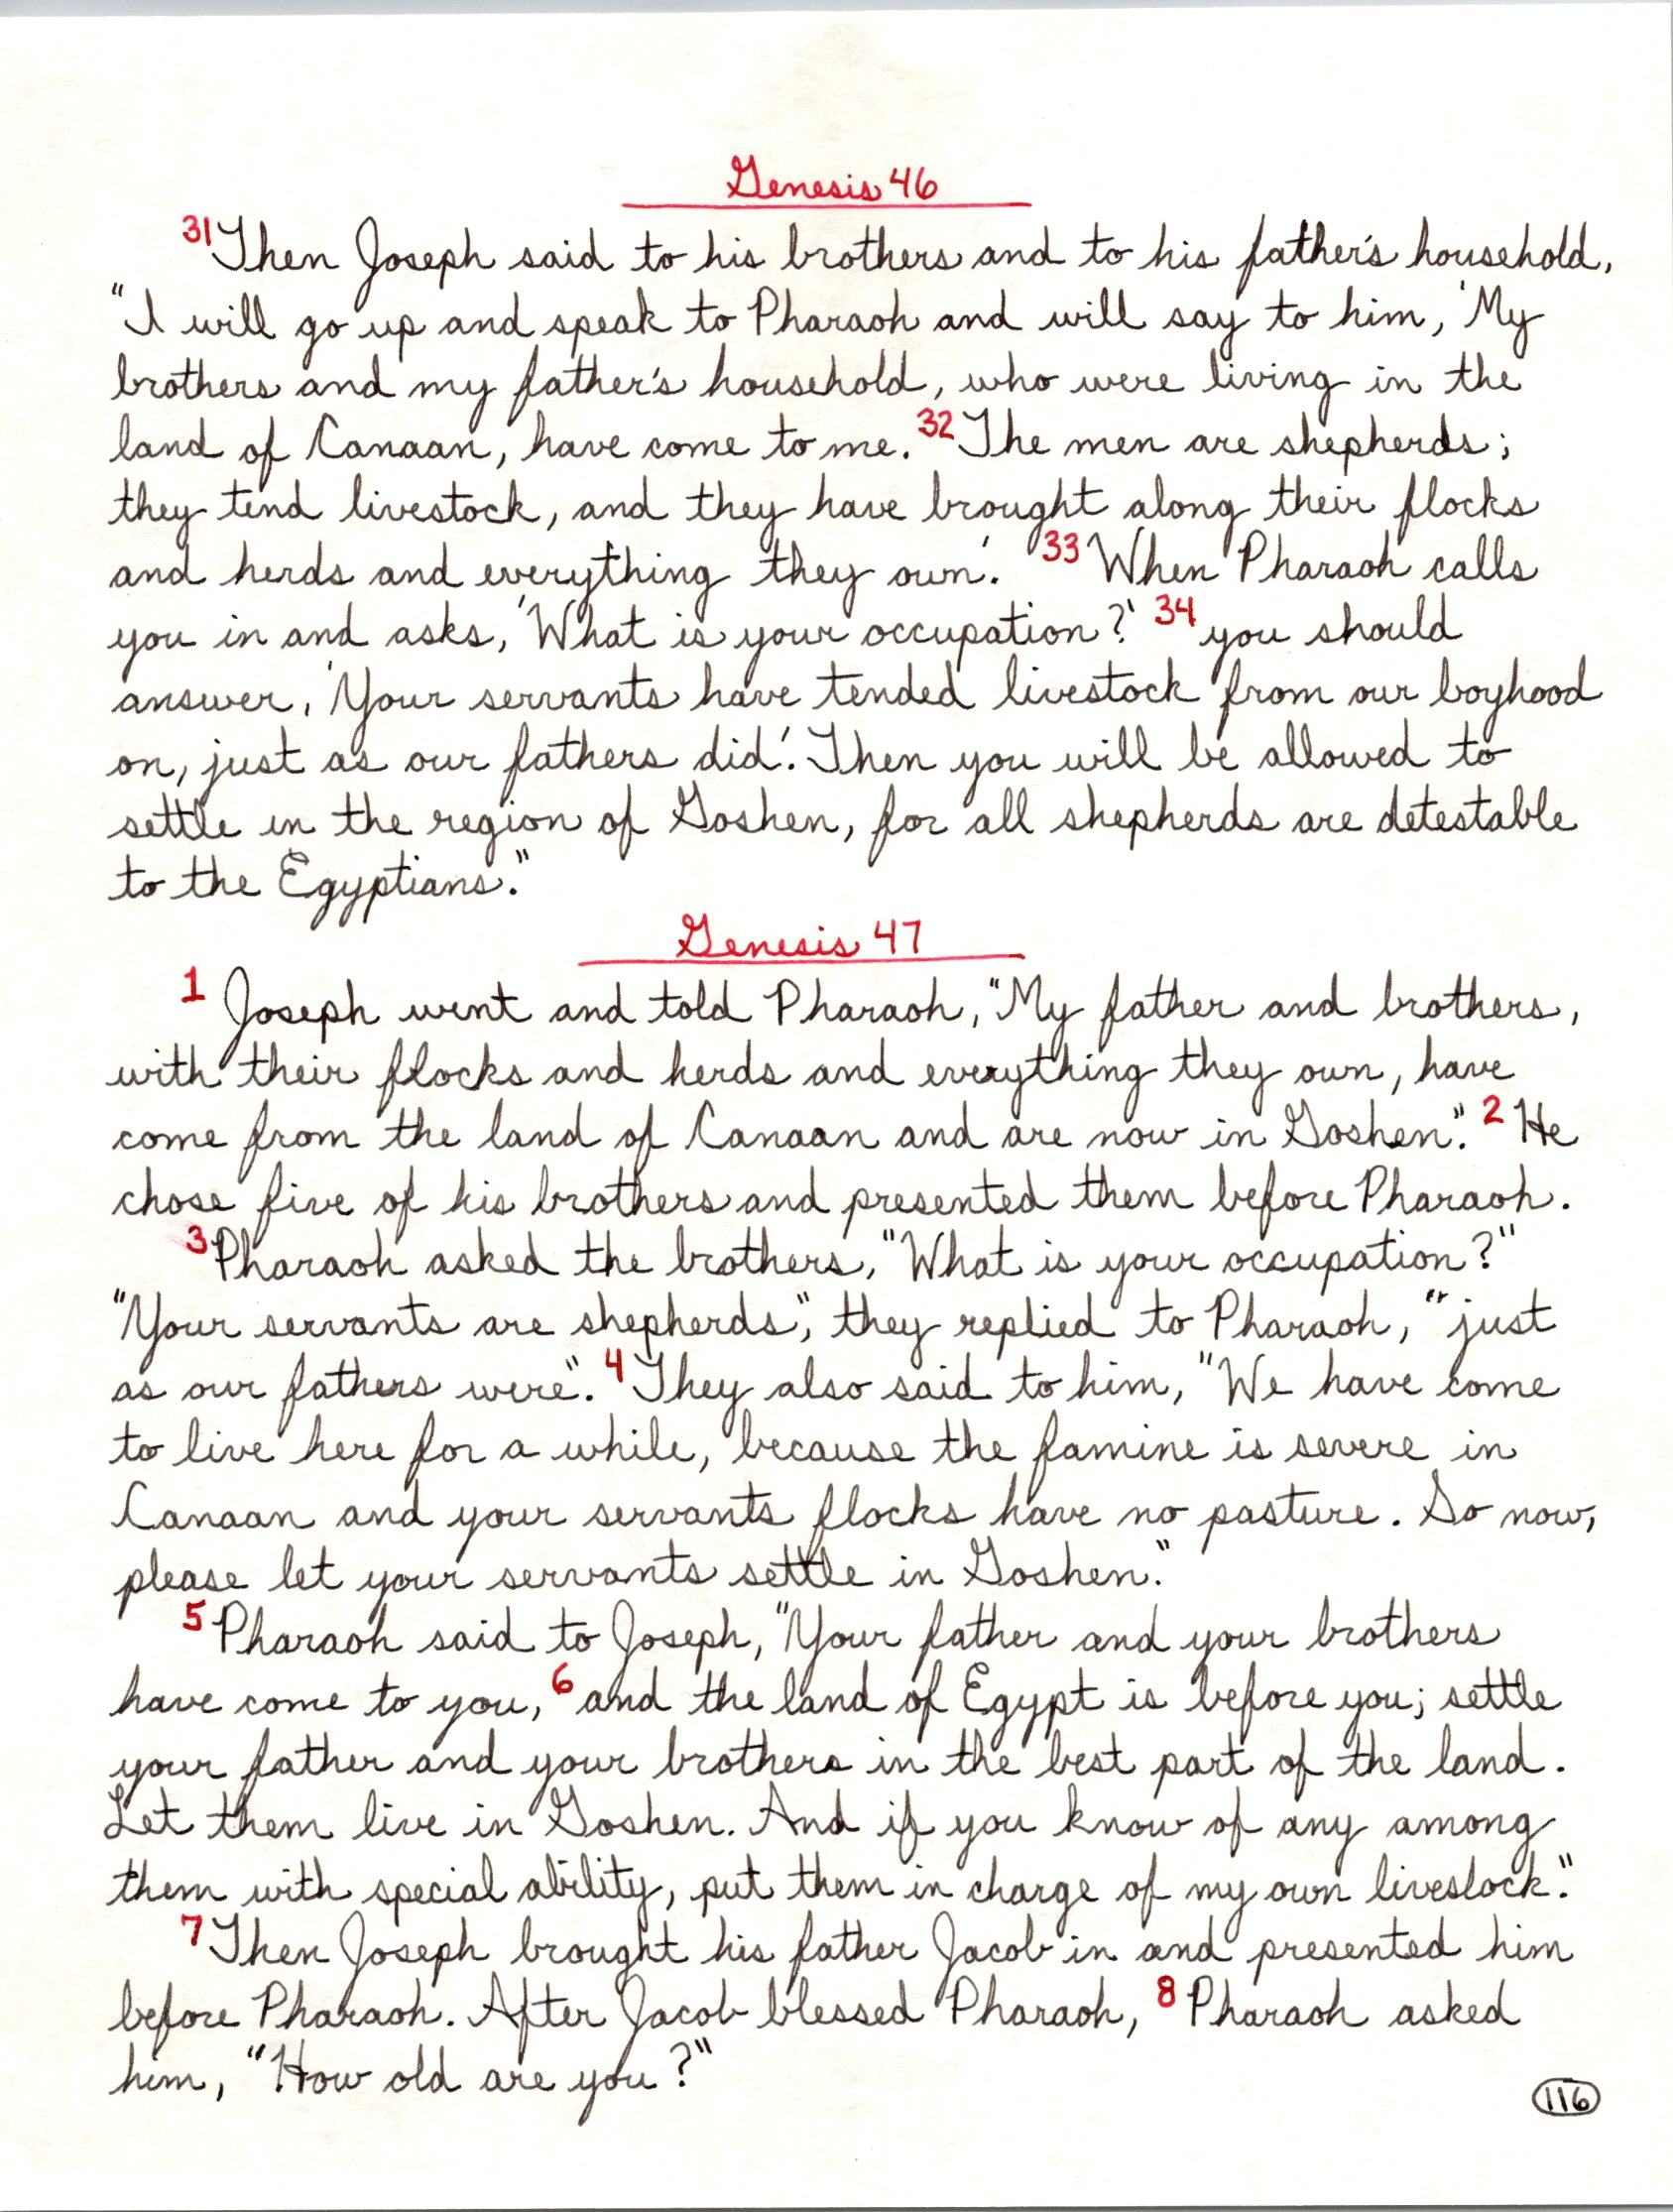 Genesis 46
31 Then Joseph said to his brothers and to his father's household,
"I will go up and speak to Pharaoh and will say to him, 'My
brothers and my father's household, who were living in the
land of Canaan, have come to me. 32 The men are shepherds;
they tend livestock, and they have brought along their flocks
and herds and everything they own'. 33 When Pharaoh calls
you in and asks, 'What is your occupation?' 34 you should
answer, 'Your servants have tended livestock from our boyhood
on, just as our fathers did'. Then you will be allowed to
settle in the region of Goshen, for all shepherds are detestable
to the Egyptians."
Genesis 47
1 Joseph went and told Pharaoh, "My father and brothers,
with their flocks and herds and everything they own, have
come from the land of Canaan and are now in Goshen". 2 He
chose five of his brothers and presented them before Pharaoh.
3 Pharaoh asked the brothers, "What is your occupation?"
"Your servants are shepherds", they replied to Pharaoh, "just
as our fathers were". 4 They also said to him, "We have come
to live here for a while, because the famine is severe in
Canaan and your servants flocks have no pasture. So now,
please let your servants settle in Goshen."
5 Pharaoh said to Joseph, "Your father and your brothers
have come to you, 6 and the land of Egypt is before you; settle
your father and your brothers in the best part of the land.
Let them live in Goshen. And if you know of any among
them with special ability, put them in charge of my own livestock."
7 Then Joseph brought his father Jacob in and presented him
before Pharaoh. After Jacob blessed Pharaoh, 8 Pharaoh asked
him, "How old are you?"
116